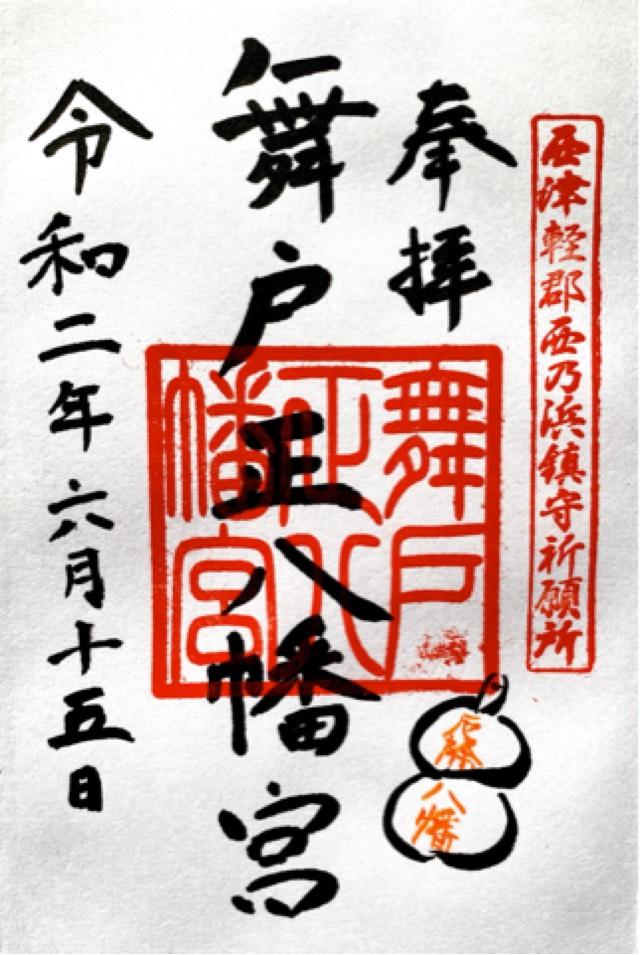 西津軽郡西乃浜鎮守祈願所
奉拝
舞戸正八幡宮
舞戸正八幡宮
令和二年六月十五日
八幡